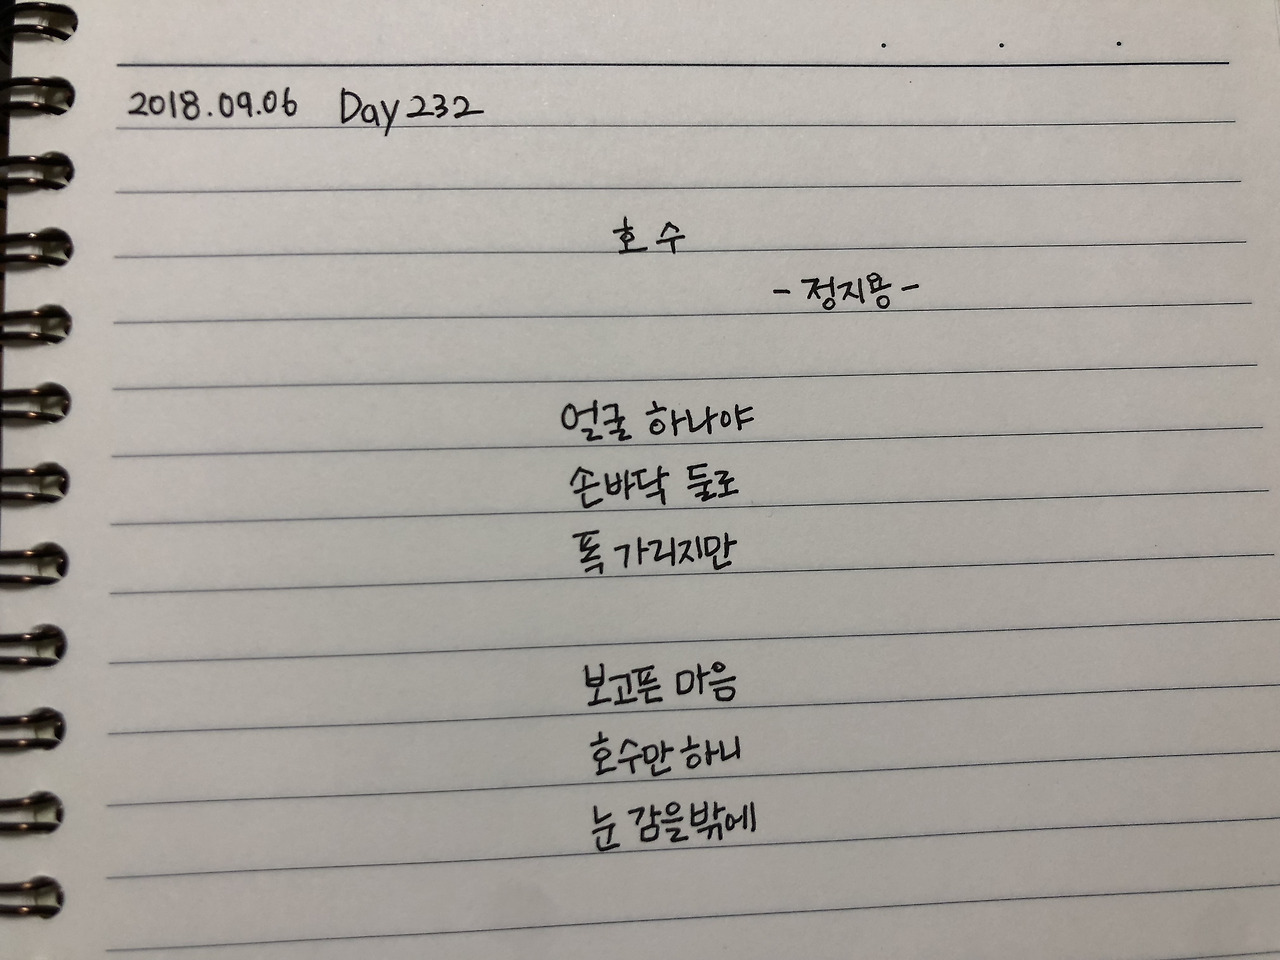 2018.09.06 Day 232
호수
- 정지용 -
얼굴 하나야
손바닥 둘로
폭 가리지만
보고픈 마음
호수만 하니
눈 감을밖에